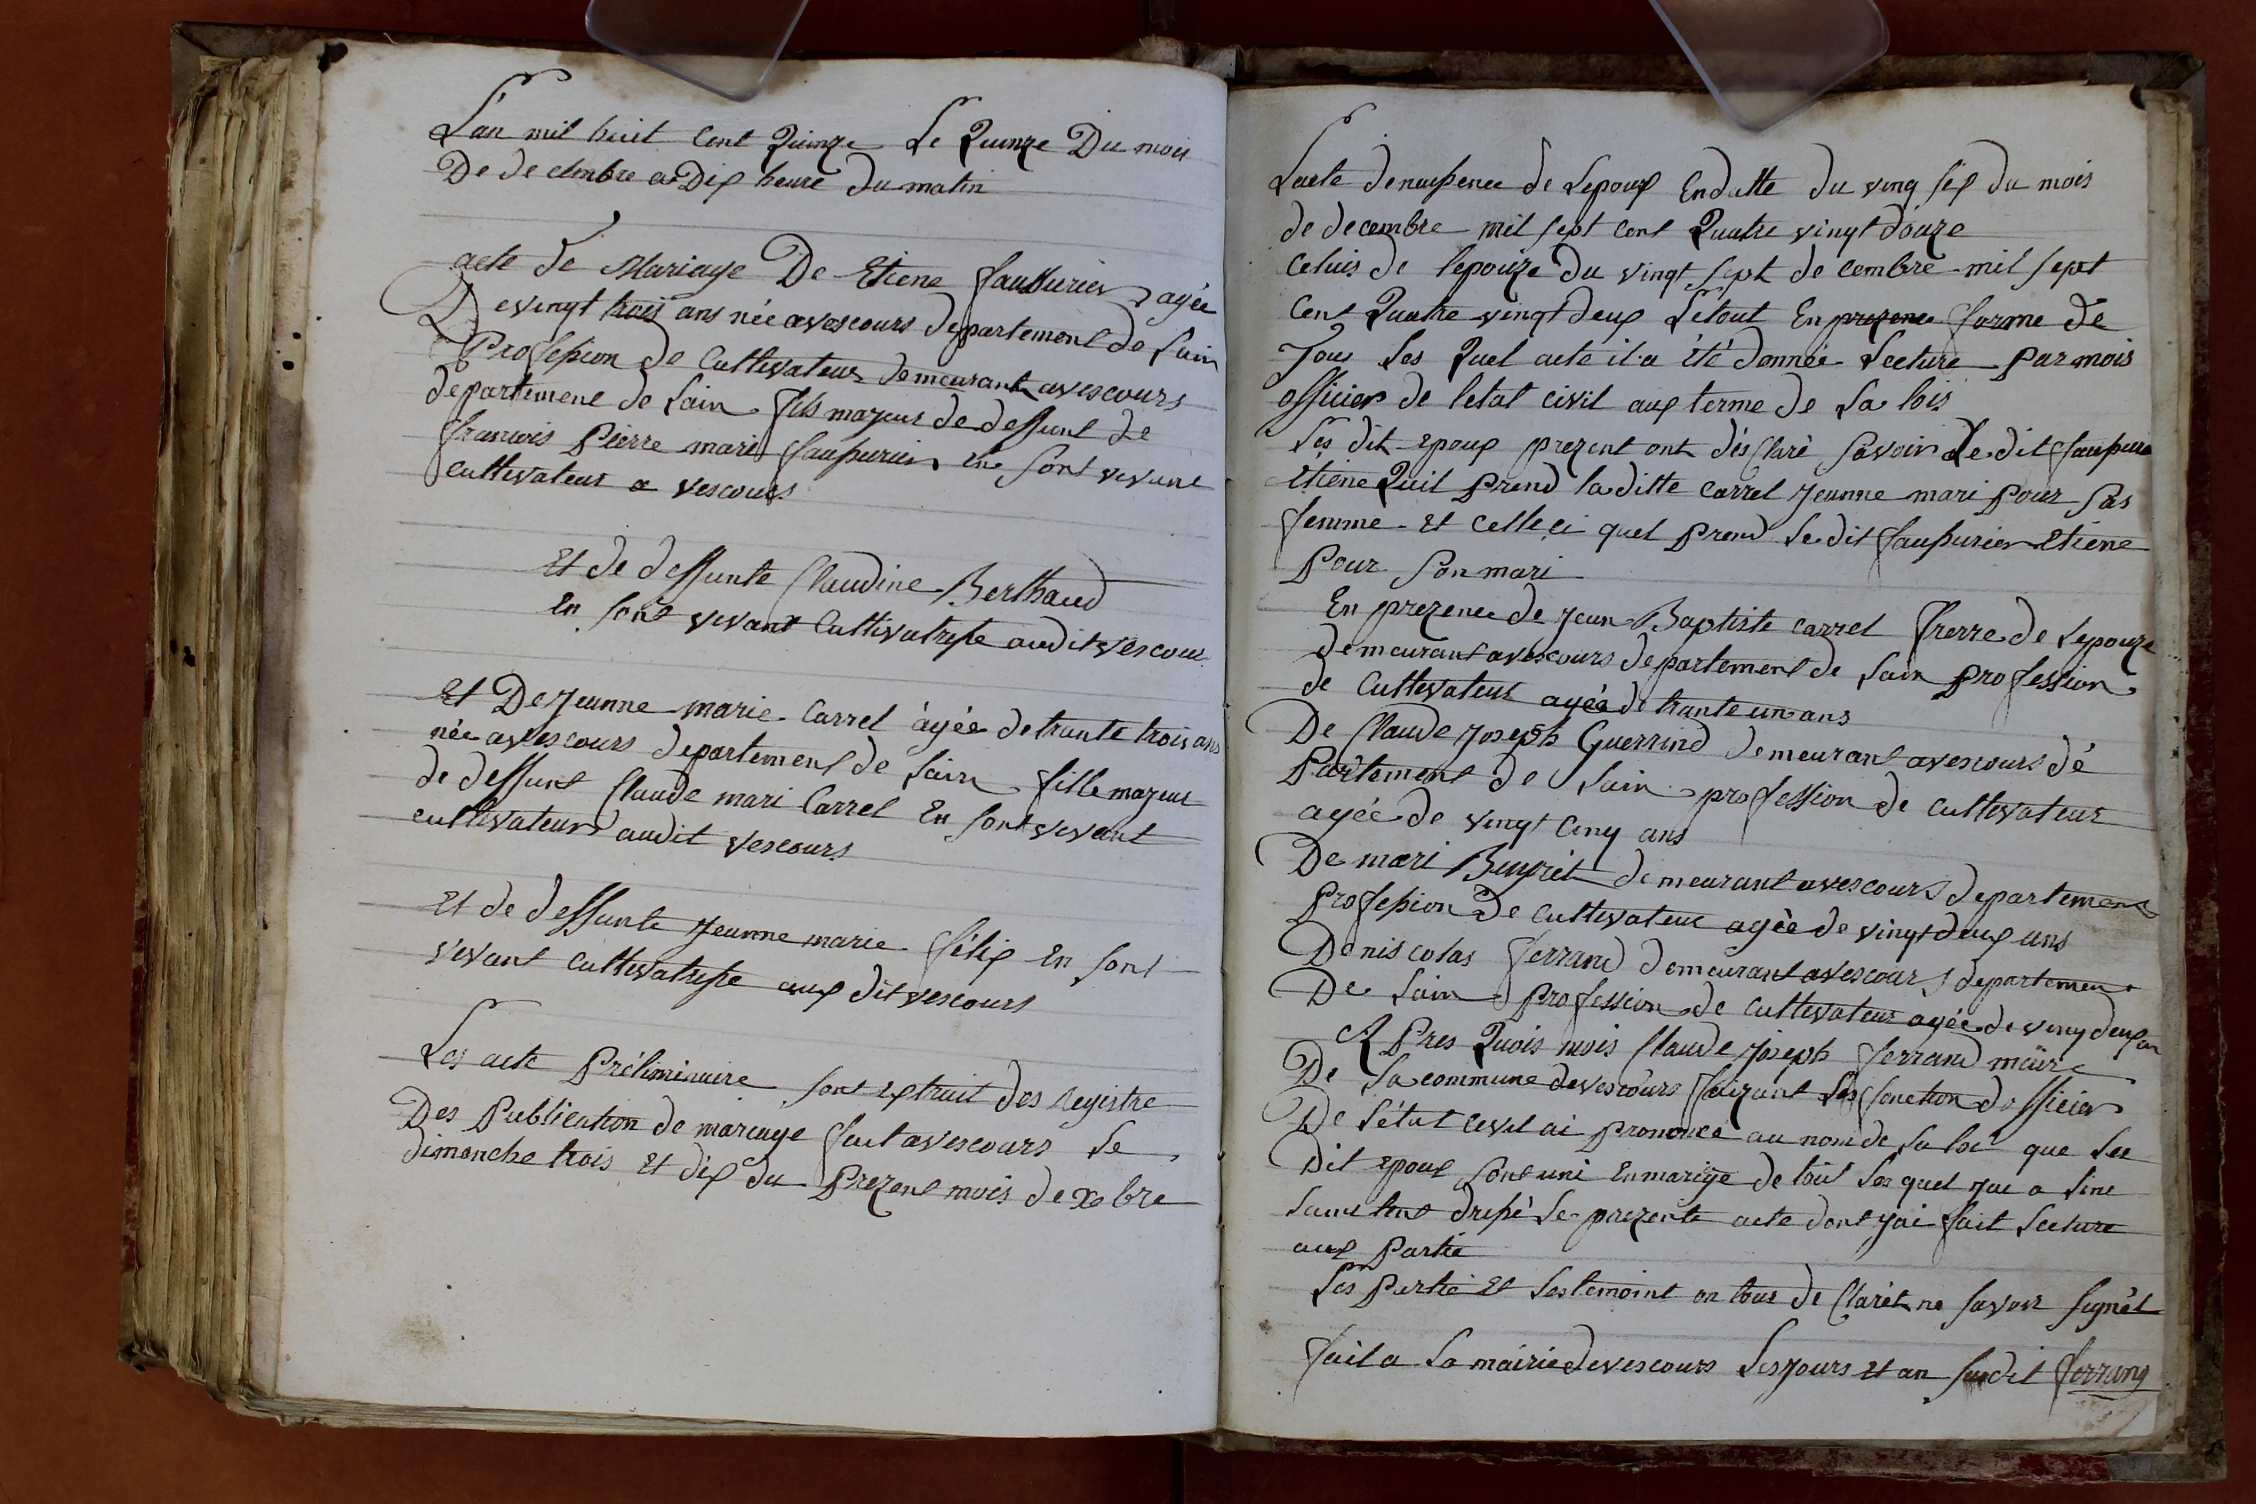 L'an mil huit Cent Quinze Le Quinze Du mois
De decembre a Dix heure du matin
acte de Mariage De Etiene faussurier agée
De vingt trois ans née avescours departement de Lain
Profession de Cultivateur demeurant avescours
departement de Lain fils majeur de deffunt de
francois Pierre mari faussurier en sont vivant
Cultivateur a vescours
Et de deffunte Claudine Berthaud
En sont vivant Cultivatrisse audit vescour
Et De jeanne marie Carrel agée de trante trois ans
née avescours departement de Lain fille majeur
de deffunt Claude mari Carrel En sont vivant
cultivateur audit vescours
Et de deffunte jeanne marie félix En sont
vivant cultivatrisse aux dit vescours
Les acte Préliminaire sont extrait des registre
Des Publication de mariage fait avescours Le
dimanche trois et dix du Prezent mois de Xbre
Lacte denaissence de Lepoux Endatte du ving six du mois
de decembre mil sept cent Quatre vingt douze
Celuis de lepouze du vingt sept decembre mil sept
Cent Quatre vingt deux Letout En prezence forme de
Tous Les Quel acte il a été donnée Lecture Par mois
officier de letat civil aux terme de La lois
Les dit epoux prezent ont désclaré savoir Le dit faussurie
Etiene Quil Prend laditte Carrel jeanne mari Pour Sas
femme et celle ci quel Prend Ledit faussurier Etiene
Pour Son mari
En prezence de jean Baptiste Carrel frerre de Lepouze
demeurant avescours departement de Lain Profession
de Cultivateur agée de trante un ans
De Claude joseph Guerrind demeurant avescours dé
Partement de Lain profession de cultivateur
agée de vingt cinq ans
De mari demeurant avescours departement
Profession de cultivateur agée de vingt deux ans
Denis colas ferrand demeurant avescours departemen
De Lain Profession de cultivateur agée de ving deux an
A Pres Quois mois Claude joseph ferrand maire
De La commune devescours faizant Les fonction dofficier
De Létat Civil ai Prononcé au nom de La loi que Les
Dit epoux sont uni En mariage de tout Les quel jai a Line
Lant dressé Le prezente acte dont jai fait Lecture
aux Partie
Les Partie et Les temoint on tous de Clarét ne savoir signét
fait a La mairie de vescours Les jours et an susdit ferrand